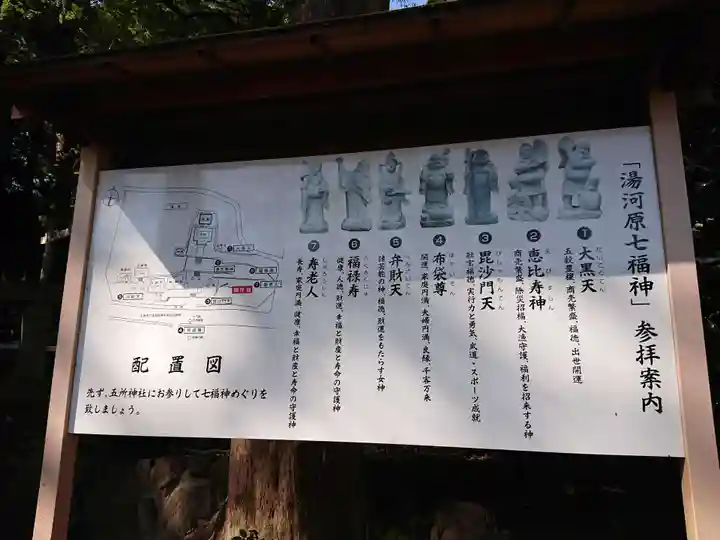 「湯河原七福神」参拝案内
❶大黒天
だいこくてん
五穀豊穣、商売繁盛、福徳、出世開運
❷恵比寿神
えびすしん
商売繁盛、除災招福、大漁守護、福利を招来する神
❸毘沙門天
びしゃもんてん
壮言福徳、実行力と勇気、武道・スポーツ成就
❹布袋尊
ほていそん
開運、家庭円満、夫婦円満、良縁、千客万来
❺弁財天
べんざいてん
諸芸能の神、福徳、財運をもたらす女神
❻福禄寿
ふくろくじゅ
健康、人徳、財運、幸福と財産と寿命の守護神
❼寿老人
じゅろうじん
長寿、家庭円満、健康、幸福と財産と寿命の守護神
配置図
先ず、五所神社にお参りして七福神めぐりを
致しましょう。